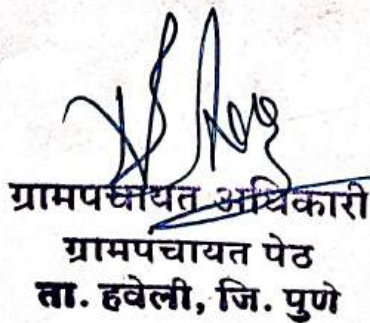 ग्रामपंचायत अधिकारी
ग्रामपचायत पेठ
ता. हवेली, जि. पुणे